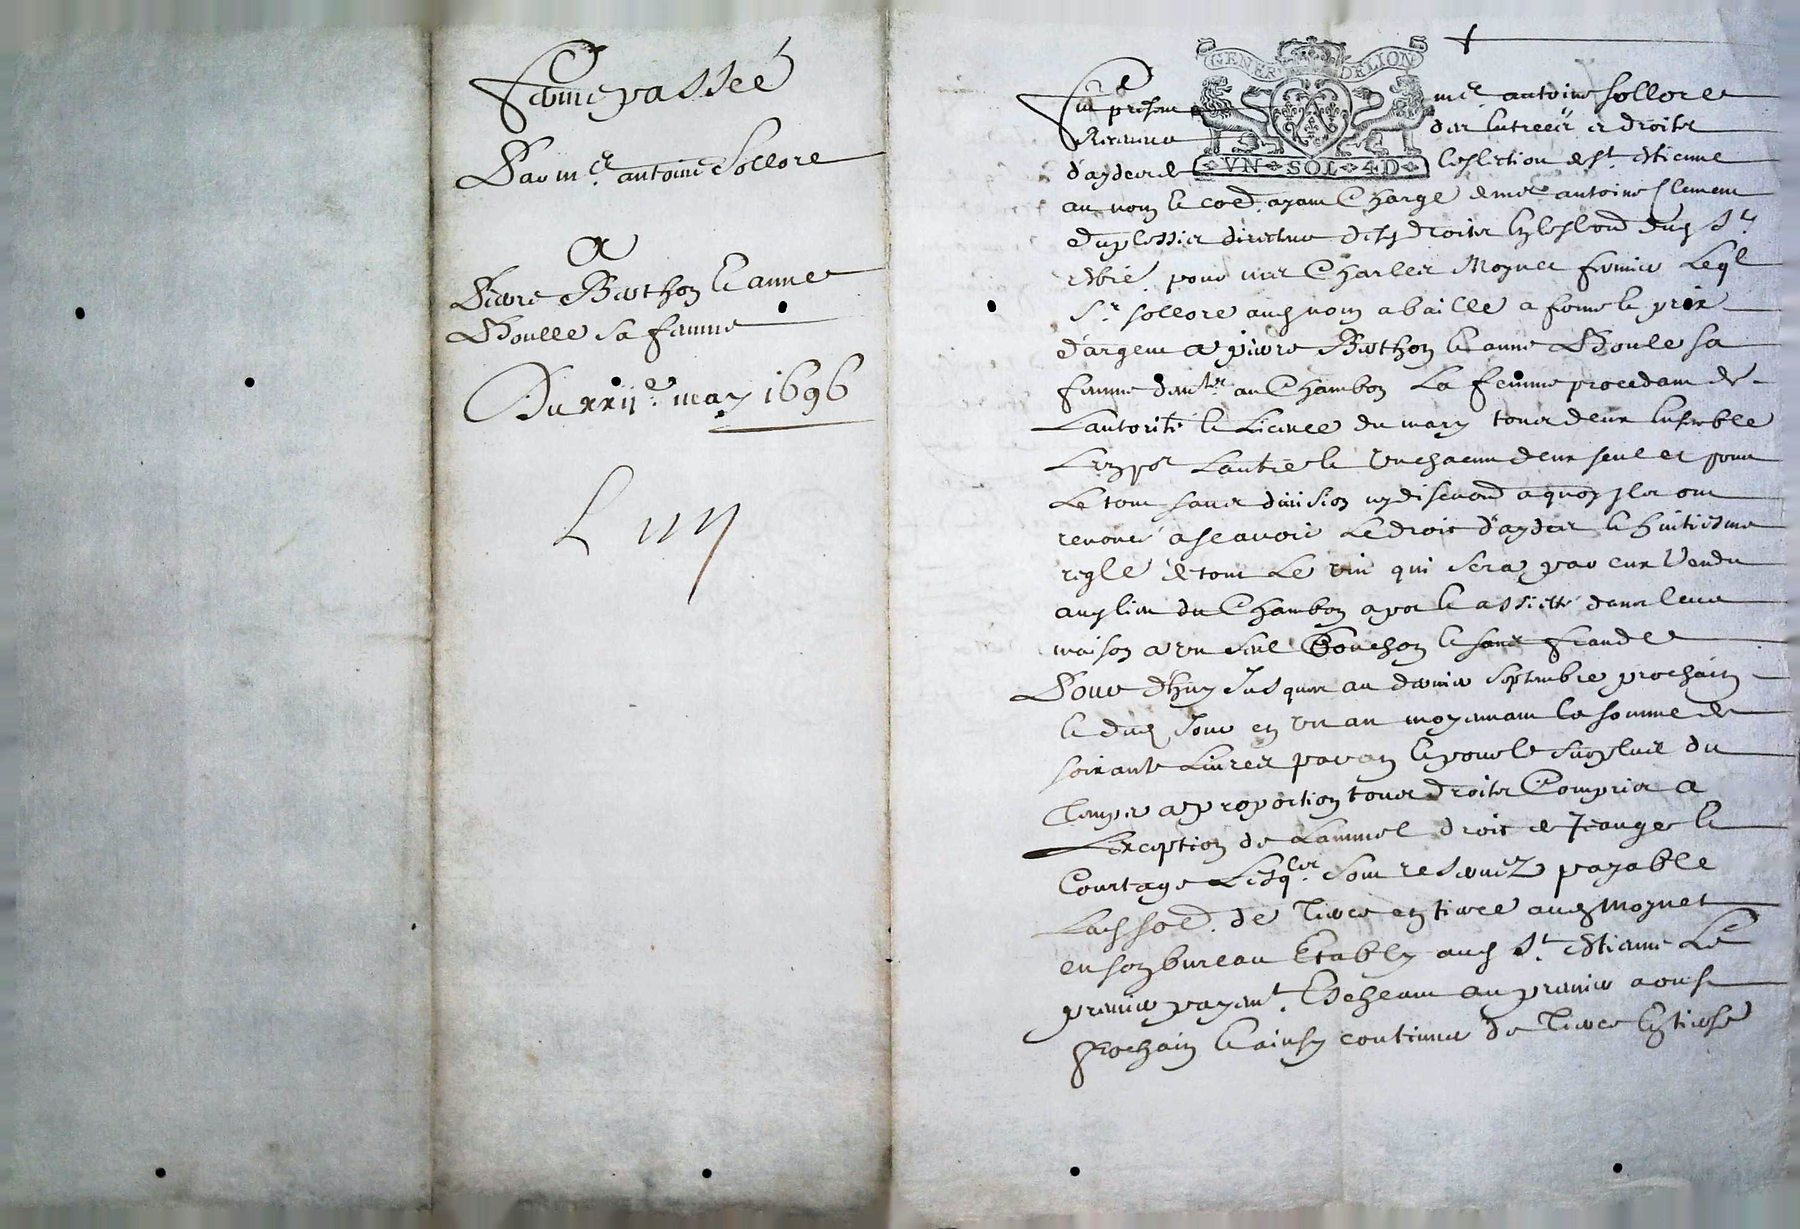 ferme passée
Par mr. antoine Sollore
A
Pierre Berthon & anne
Boulle sa femme
Du xxije. may 1696
GENER DE LION
VN SOL 4D
fut présent mr. antoine Sollore
Receveur des entrées et droits
d'aydes de leslection de st. Estienne
au nom & ayant Charge de mre antoine Clement
duplessier directeur desd droits
pour mre Charles Moynet fermier leql
Sr. Sollore aud nom a baillé a ferme & prix
d'argent a pierre Berthon & anne Boule sa
femme au Chambon La femme procedant de
Lautorité & Licence du mary tous deux ensemble
Lun por Lautre & un chacun deux seul et pour
Le tout sans division ny discution a quoy ils ont
renoncé ascavoir Le droit d'aydes & huitiesme
reglé de tout Le vin qui sera par eux Vendu
aud lieu du Chambon a pot & assiette dans leur
maison a un seul Bouchon & sans fraude
Pour d'huy Jusques au dernier Septembre prochain
& dud Jour en un an moyennant la somme de
soixante Livres par an & pour le surplus du
temps a proportion tous droits Compris a
Lexception de Lannuel droit de Jauge &
Courtage Lesqls. sont reservez payable
Lad de Tiers en tiers aud Moynet
en son bureau Estably aud St. Estienne Le
premier payemt. Escheant au premier aoust
prochain & ainsy continuer de Tiers En tiers